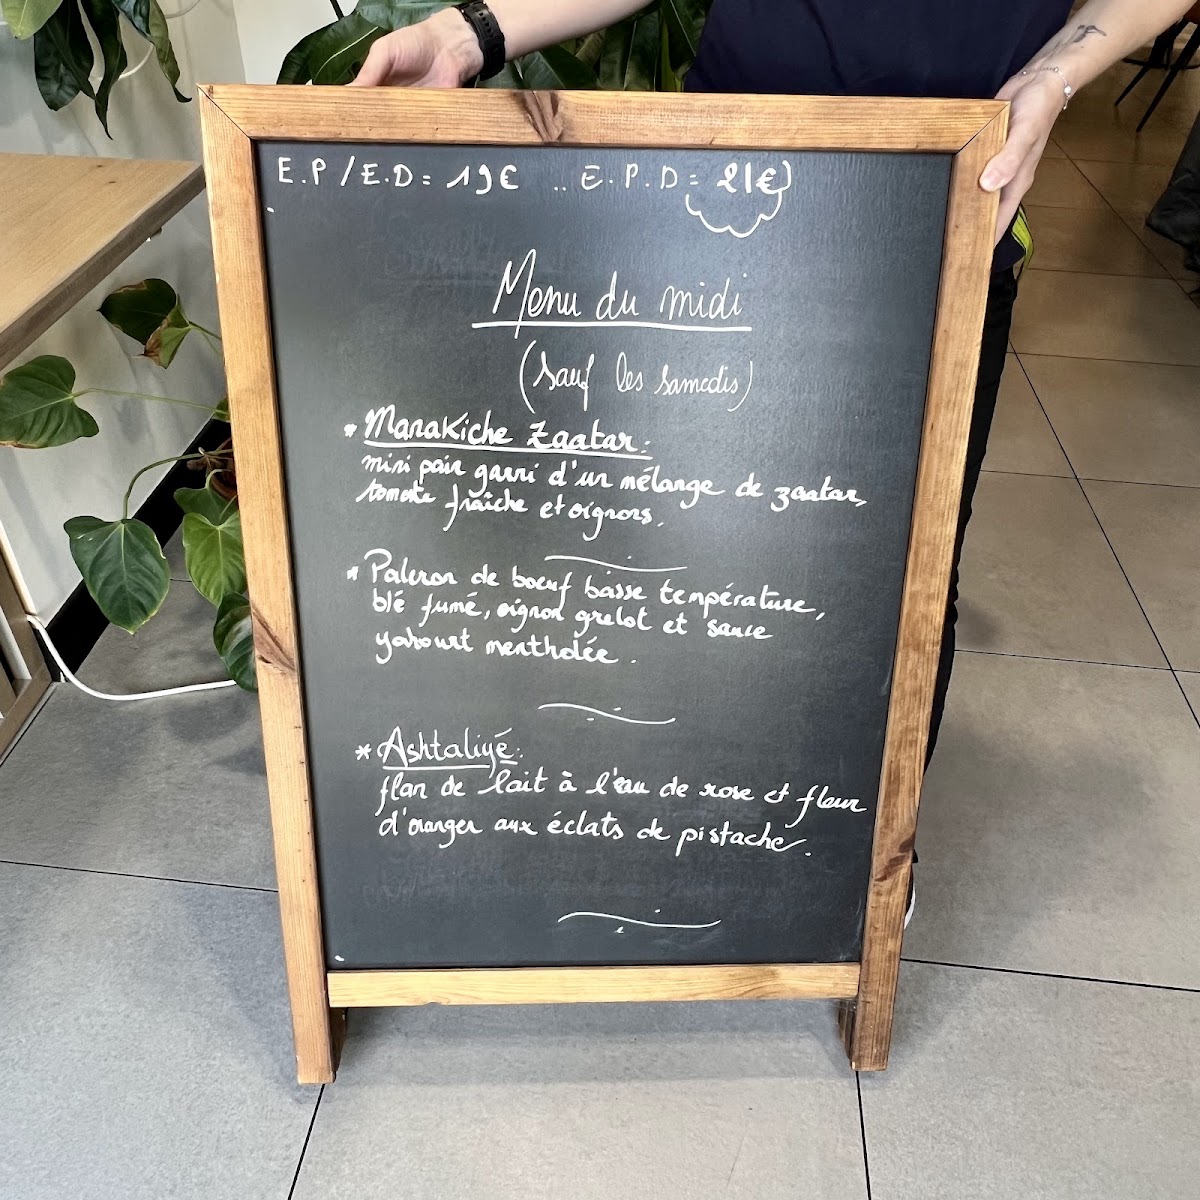 E.P / E.D = 19€ .. E.P.D = 21€
Menu du midi
(sauf les samedis)
* Manakiche Zaatar :
mini pain garni d'un mélange de zaatar,
tomate fraîche et oignons.
* Paleron de boeuf basse température,
blé fumé, oignon grelot et sauce
yahourt mentholée .
* Ashtaliyé :
flan de lait à l'eau de rose et fleur
d'oranger aux éclats de pistache.